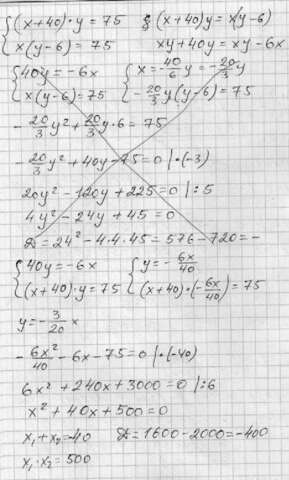 {(x+40)·y = 75   (x+40)y = x(y-6)
{x(y-6) = 75   xy+40y = xy-6x
{40y = -6x   {x = -40/6 y = -20/3 y
{x(y-6) = 75   {-20/3 y(y-6) = 75
-20/3 y² + 20/3 y·6 = 75
-20/3 y² + 40y - 75 = 0 |·(-3)
20y² - 120y + 225 = 0 |:5
4y² - 24y + 45 = 0
D = 24² - 4·4·45 = 576 - 720 = -
{40y = -6x   {y = -6x/40
{(x+40)·y = 75   {(x+40)·(-6x/40) = 75
y = -3/20 x
-6x²/40 - 6x - 75 = 0 |·(-40)
6x² + 240x + 3000 = 0 |:6
x² + 40x + 500 = 0
x₁+x₂ = -40   D = 1600 - 2000 = -400
x₁·x₂ = 500